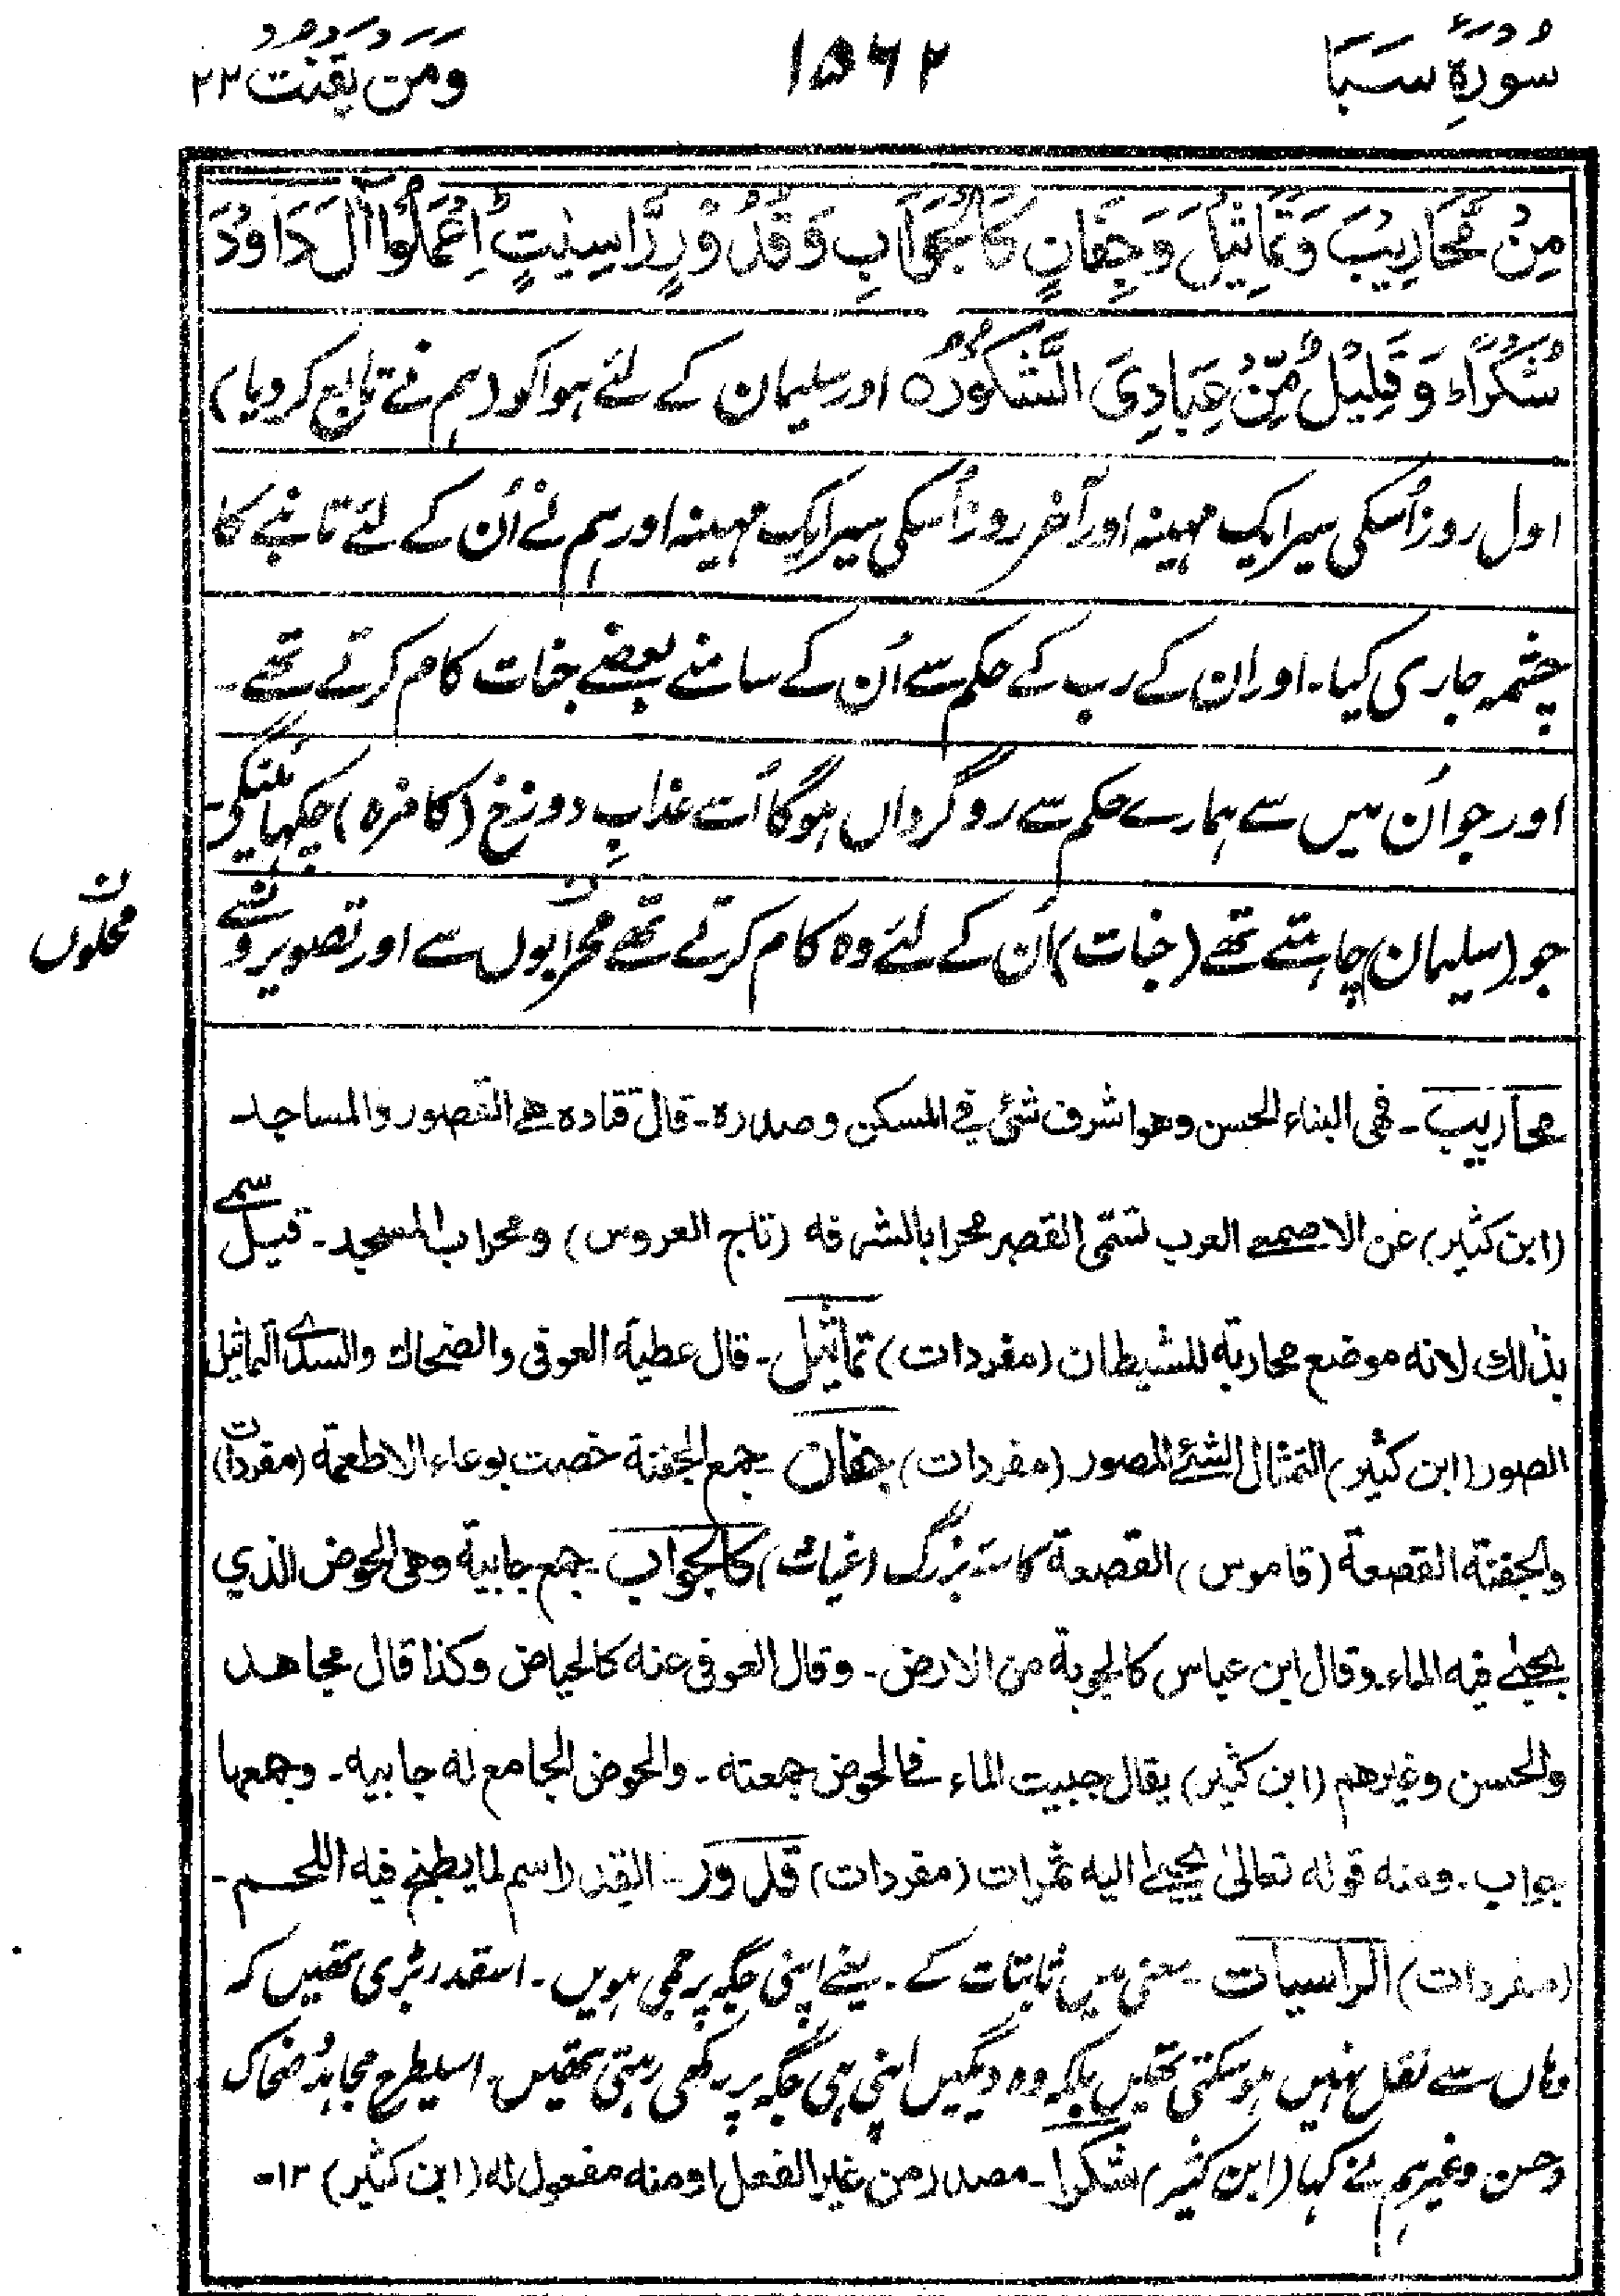 سُورَةِ سَبَا ۱۵۶۲ وَمَن يَقنُت ۲۲
مِنْ مَّحَارِيْبَ وَتَمَاثِيْلَ وَجِفَانٍ كَالْجَوَابِ وَقُدُوْرٍ رّٰسِيٰتٍ ؕ اِعْمَلُوْا اٰلَ دَاوٗدَ
شُكْرًا ؕ وَقَلِيْلٌ مِّنْ عِبَادِيَ الشَّكُوْرُ ہ اور سلیمان کے لئے ہوا کو (ہم نے تابع کر دیا)
اول روز اُسکی سیر ایک مہینہ اور آخر روز اُسکی سیر ایک مہینہ اور ہم نے اُن کے لئے تانبے کا
چشمہ جاری کیا۔ اور ان کے رب کے حکم سے اُن کے سامنے بعضے جنات کام کرتے تھے۔
اور جو اُن میں سے ہمارے حکم سے روگرداں ہوگا اُسے عذابِ دوزخ (کا مزہ) چکہائینگے۔
جو (سلیمان) چاہتے تھے (جنات) اُن کے لئے وہ کام کرتے تھے محرابوں سے اور تصویروں سے
محلوں
محاریب۔ فهی البناء الحسن وهو اشرف شئ فی المسکن وصدره۔ قال قتاده هے القصور والمساجد۔
(ابن کثیر) عن الاصمعے العرب تسمّی القصر محرابا لشرفه (تاج العروس) ومحراب المسجد۔ قیل سمے
بذلك لانه موضع محاربة للشیطان (مفردات) تماثیل۔ قال عطیة العوفی والضحاك والسدے التماثیل
الصور (ابن کثیر) التمثال الشئے المصور (مفردات) جفان جمع الجفنة خصت بوعاء الاطعمة (مفردات)
والجفنة القصعة (قاموس) القصعة کاسۂ بزرگ (غیاث) کالجواب۔ جمع جابیة وهی الحوض الذي
یجبے فیه الماء وقال ابن عباس کالجوبة من الارض۔ وقال العوفی عنه کالحیاض وکذا قال مجاهد
والحسن وغیرهم (ابن کثیر) یقال جبیت الماء فی الحوض جمعته۔ والحوض الجامع له جابیه۔ وجمعها
جواب۔ ومنه قوله تعالیٰ یجبےٰ الیه ثمرات (مفردات) قدور۔ القدر اسم لما یطبخ فیه اللحم۔
(مفردات) الراسیات۔ معنی میں ثابتات کے۔ یعنے اپنی جگہ پر جمی ہوئیں۔ اسقدر بڑی تھیں کہ
وہاں سے نقل نہیں ہو سکتی تھیں بلکہ وہ دیگیں اپنی ہی جگہ پر رکھی رہتی تھیں۔ اسیطرح مجاہد ضحاک
وحسن وغیرہم نے کہا (ابن کثیر) شکرا۔ مصدر من غیر الفعل او منه مفعول له (ابن کثیر) ۱۲۔